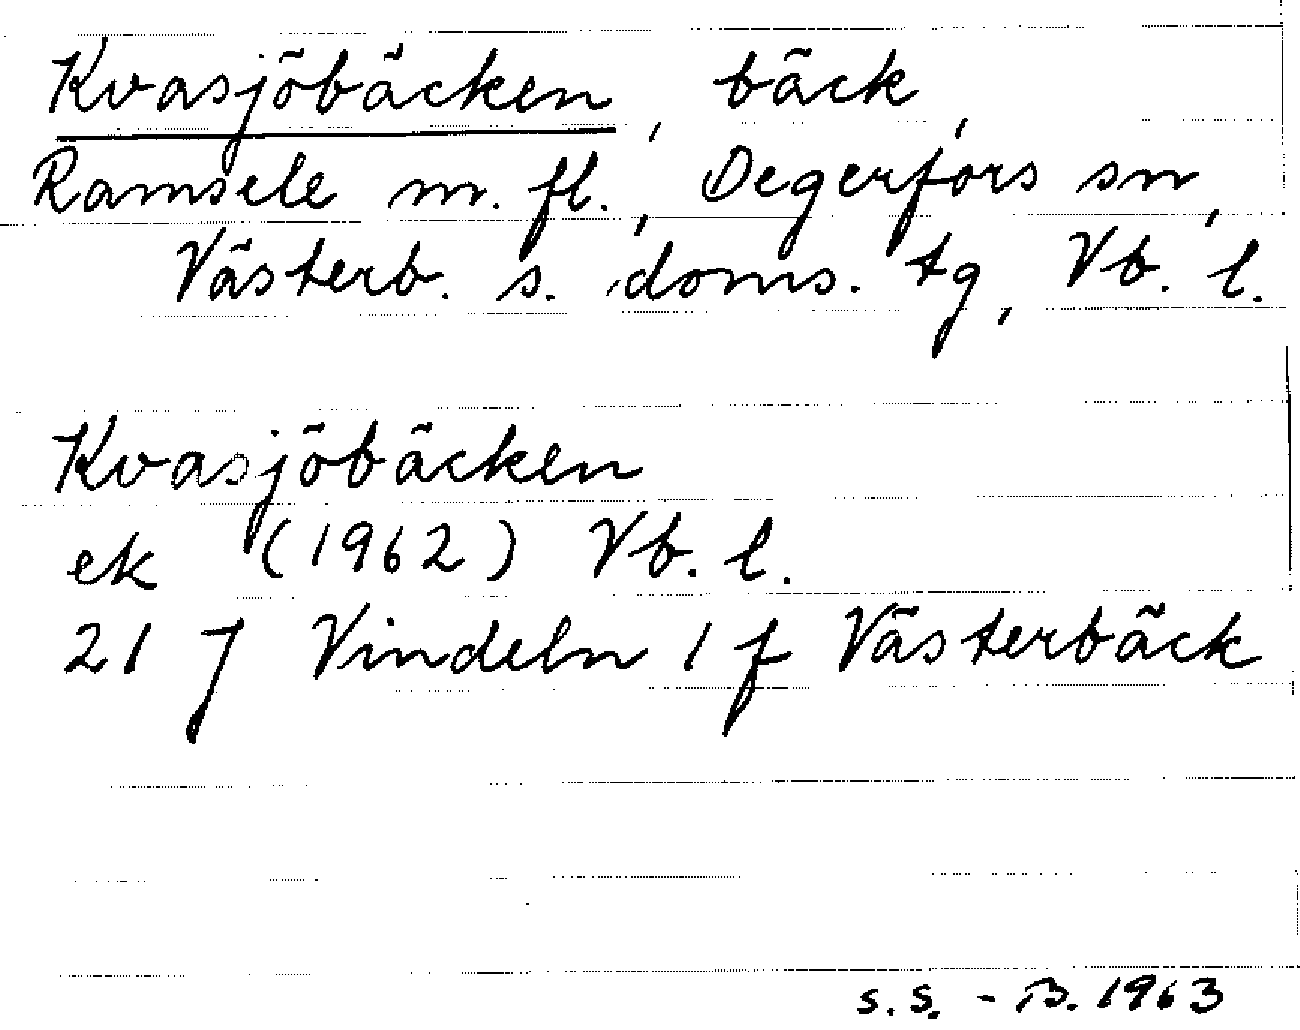 Kvasjöbäcken, bäck,
Ramsele m. fl., Degerfors sn,
Västerb. s. doms. tg, Vb. l.
Kvasjöbäcken
ek (1962) Vb. l.
21 J Vindeln 1 f Västerbäck
s.s. - B. 1963